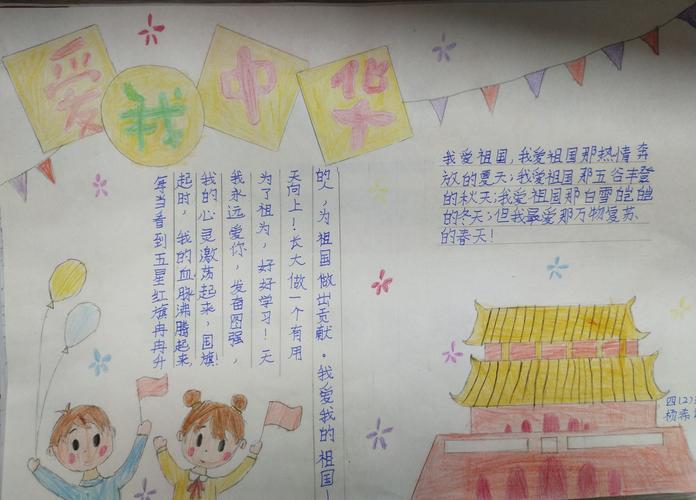 爱我中华
每当看到五星红旗冉冉升
起时，我的血脉沸腾起来，
我的心灵激荡起来，国旗！
我永远爱你，发奋图强，
为了祖为，好好学习！天
天向上！长大做一个有用
的人，为祖国做出贡献。我爱我的祖国！
我爱祖国，我爱祖国那热情奔
放的夏天；我爱祖国那五谷丰登
的秋天；我爱祖国那白雪皑皑
的冬天；但我最爱那万物复苏
的春天！
四(2)
杨